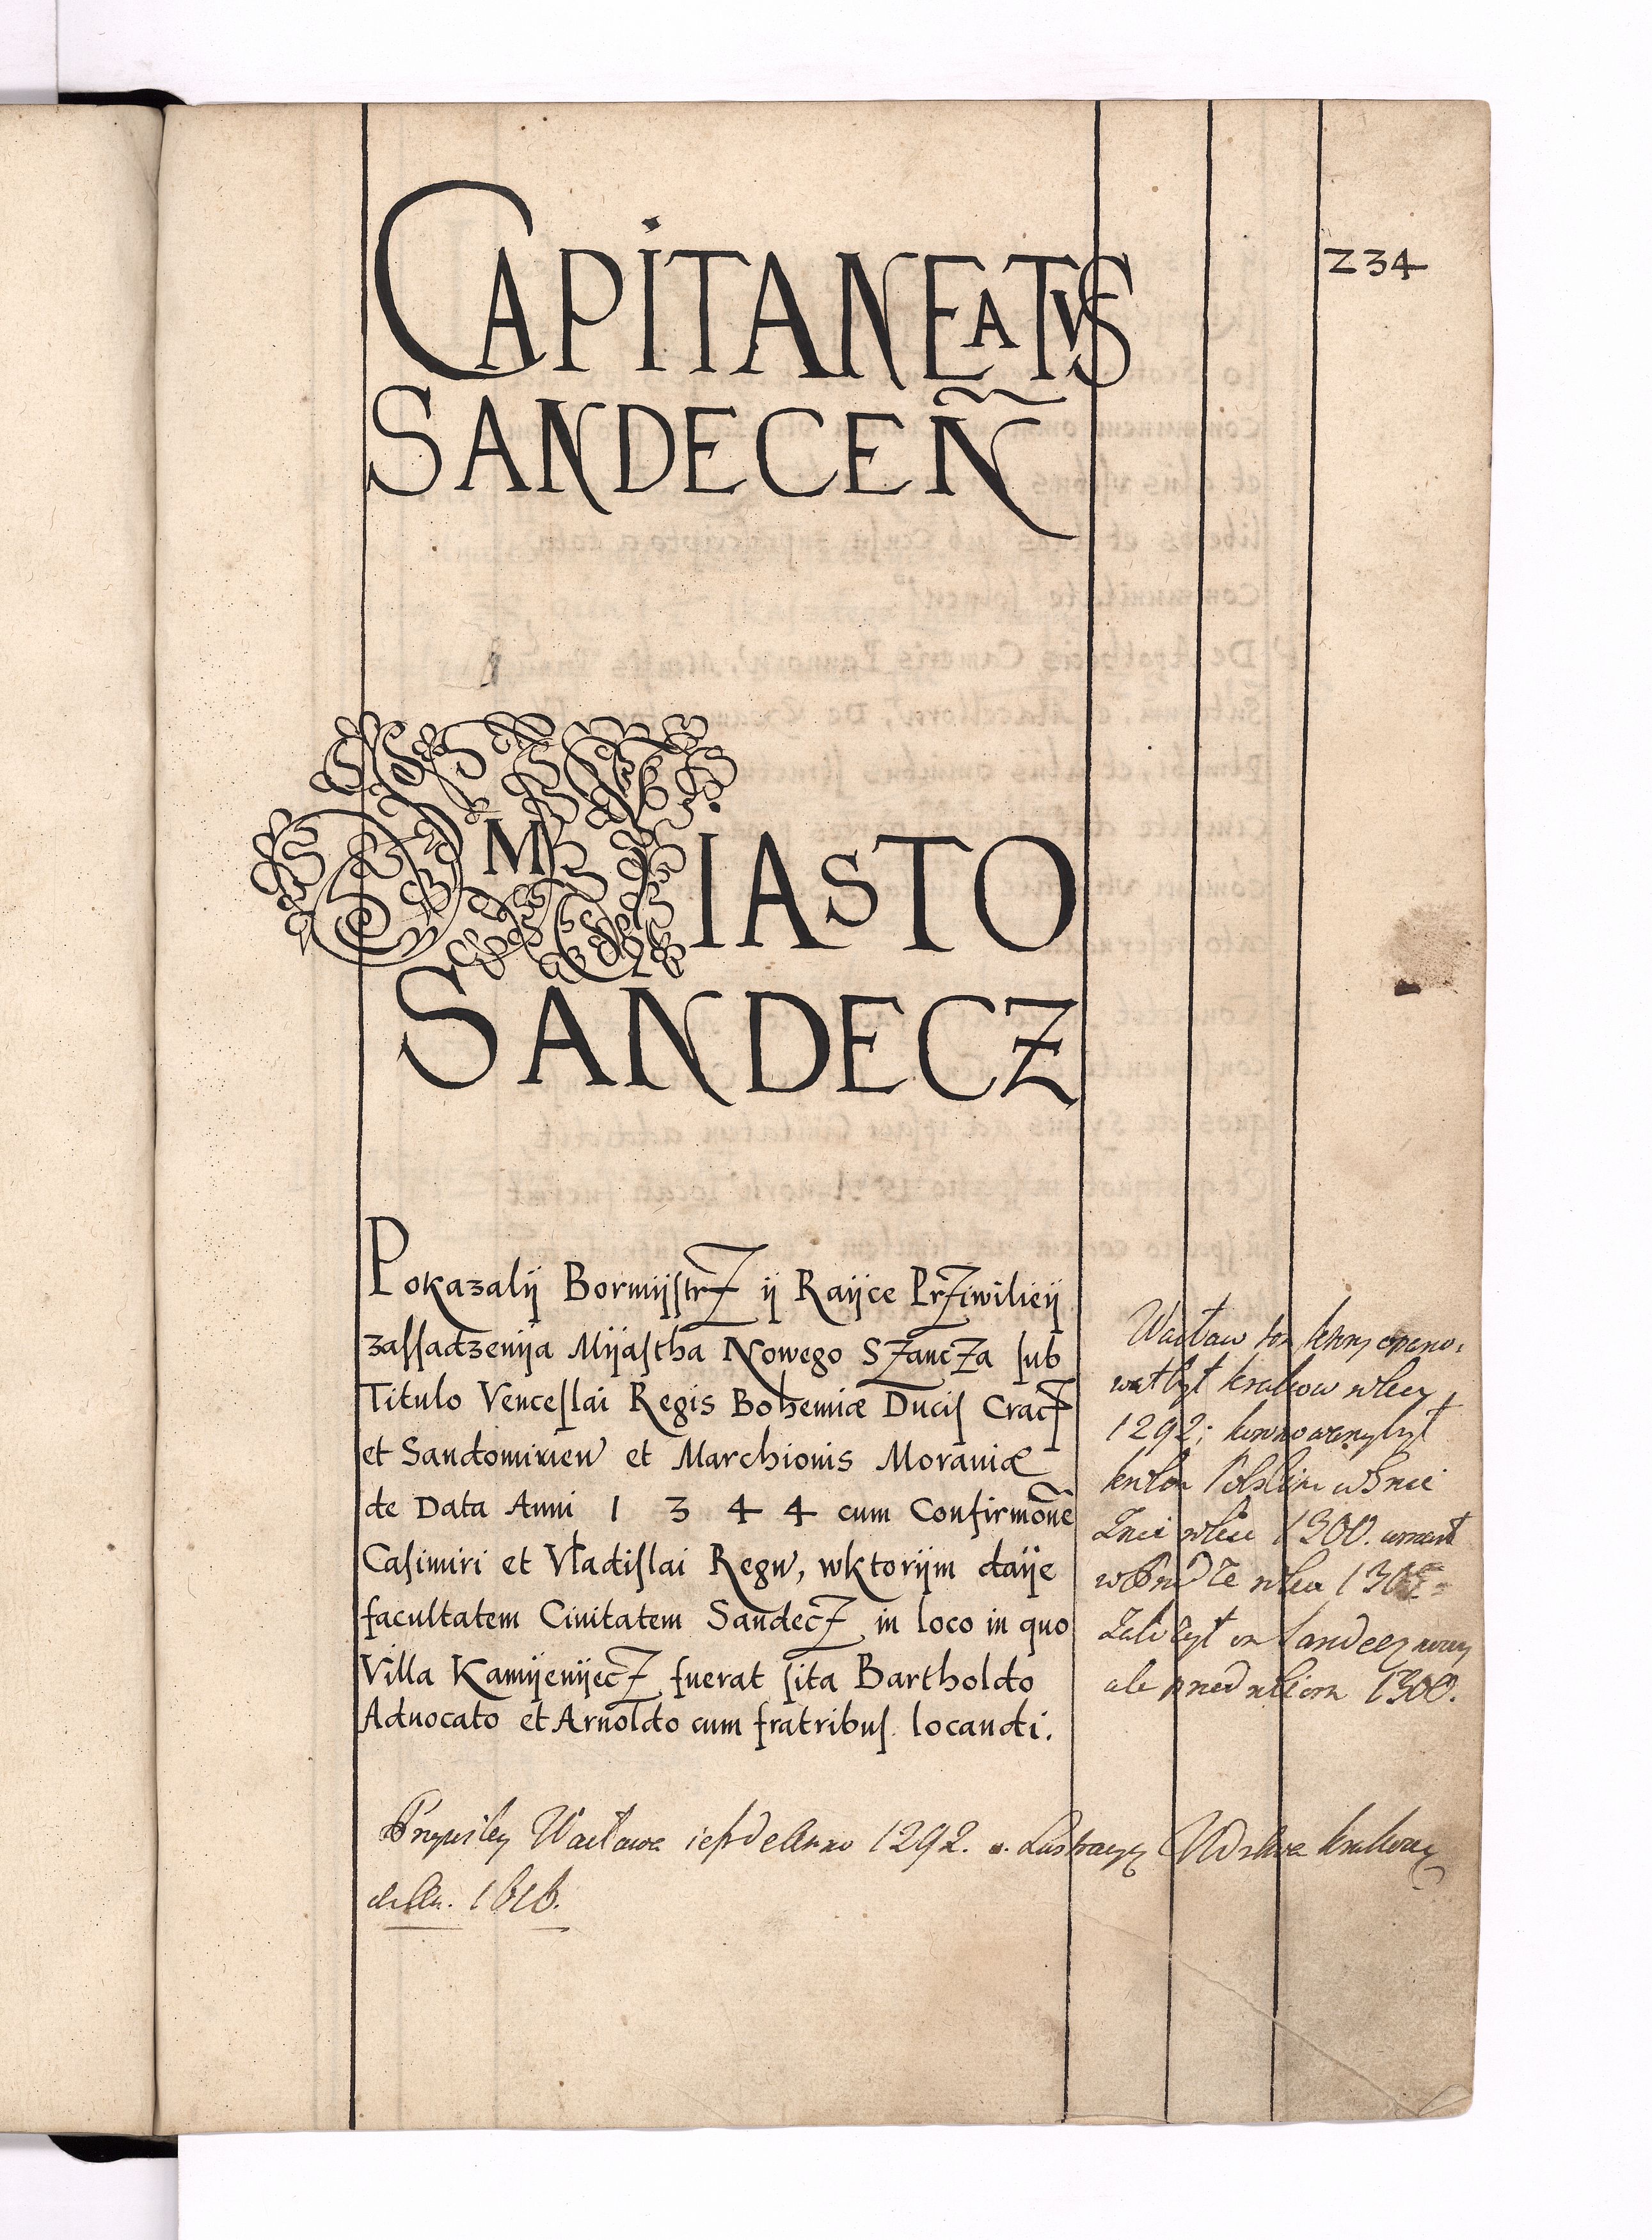 234
CAPITANEATVS
SANDECEÑ
MIASTO
SANDECZ
Pokazalÿ Bormÿſtrz ÿ Raÿce Przÿwilieÿ
zaſſadzenÿa Mÿaſtha Nowego Szancza ſub
Titulo Venceſlai Regis Bohemiæ Duciſ Crac
et Sandomirien et Marchionis Morauiæ
de Data Anni 1344 cum Confirmōne
Caſimiri et Vladiſlai Regū, wktorÿm daÿe
facultatem Ciuitatem Sandecz in loco in quo
Villa Kamÿenÿecz fuerat ſita Bartholdo
Aduocato et Arnoldo cum fratribuſ locandi.
Wacław ten ktory opano,
wał był krakow
1292; koronowany był
krolem Polskim w
1300. umarł
w
założył on Sandecz nowy
ale przed 1300.
Przywiley Wacława iest de Anno 1292. Lustracyi
de An. 1616.